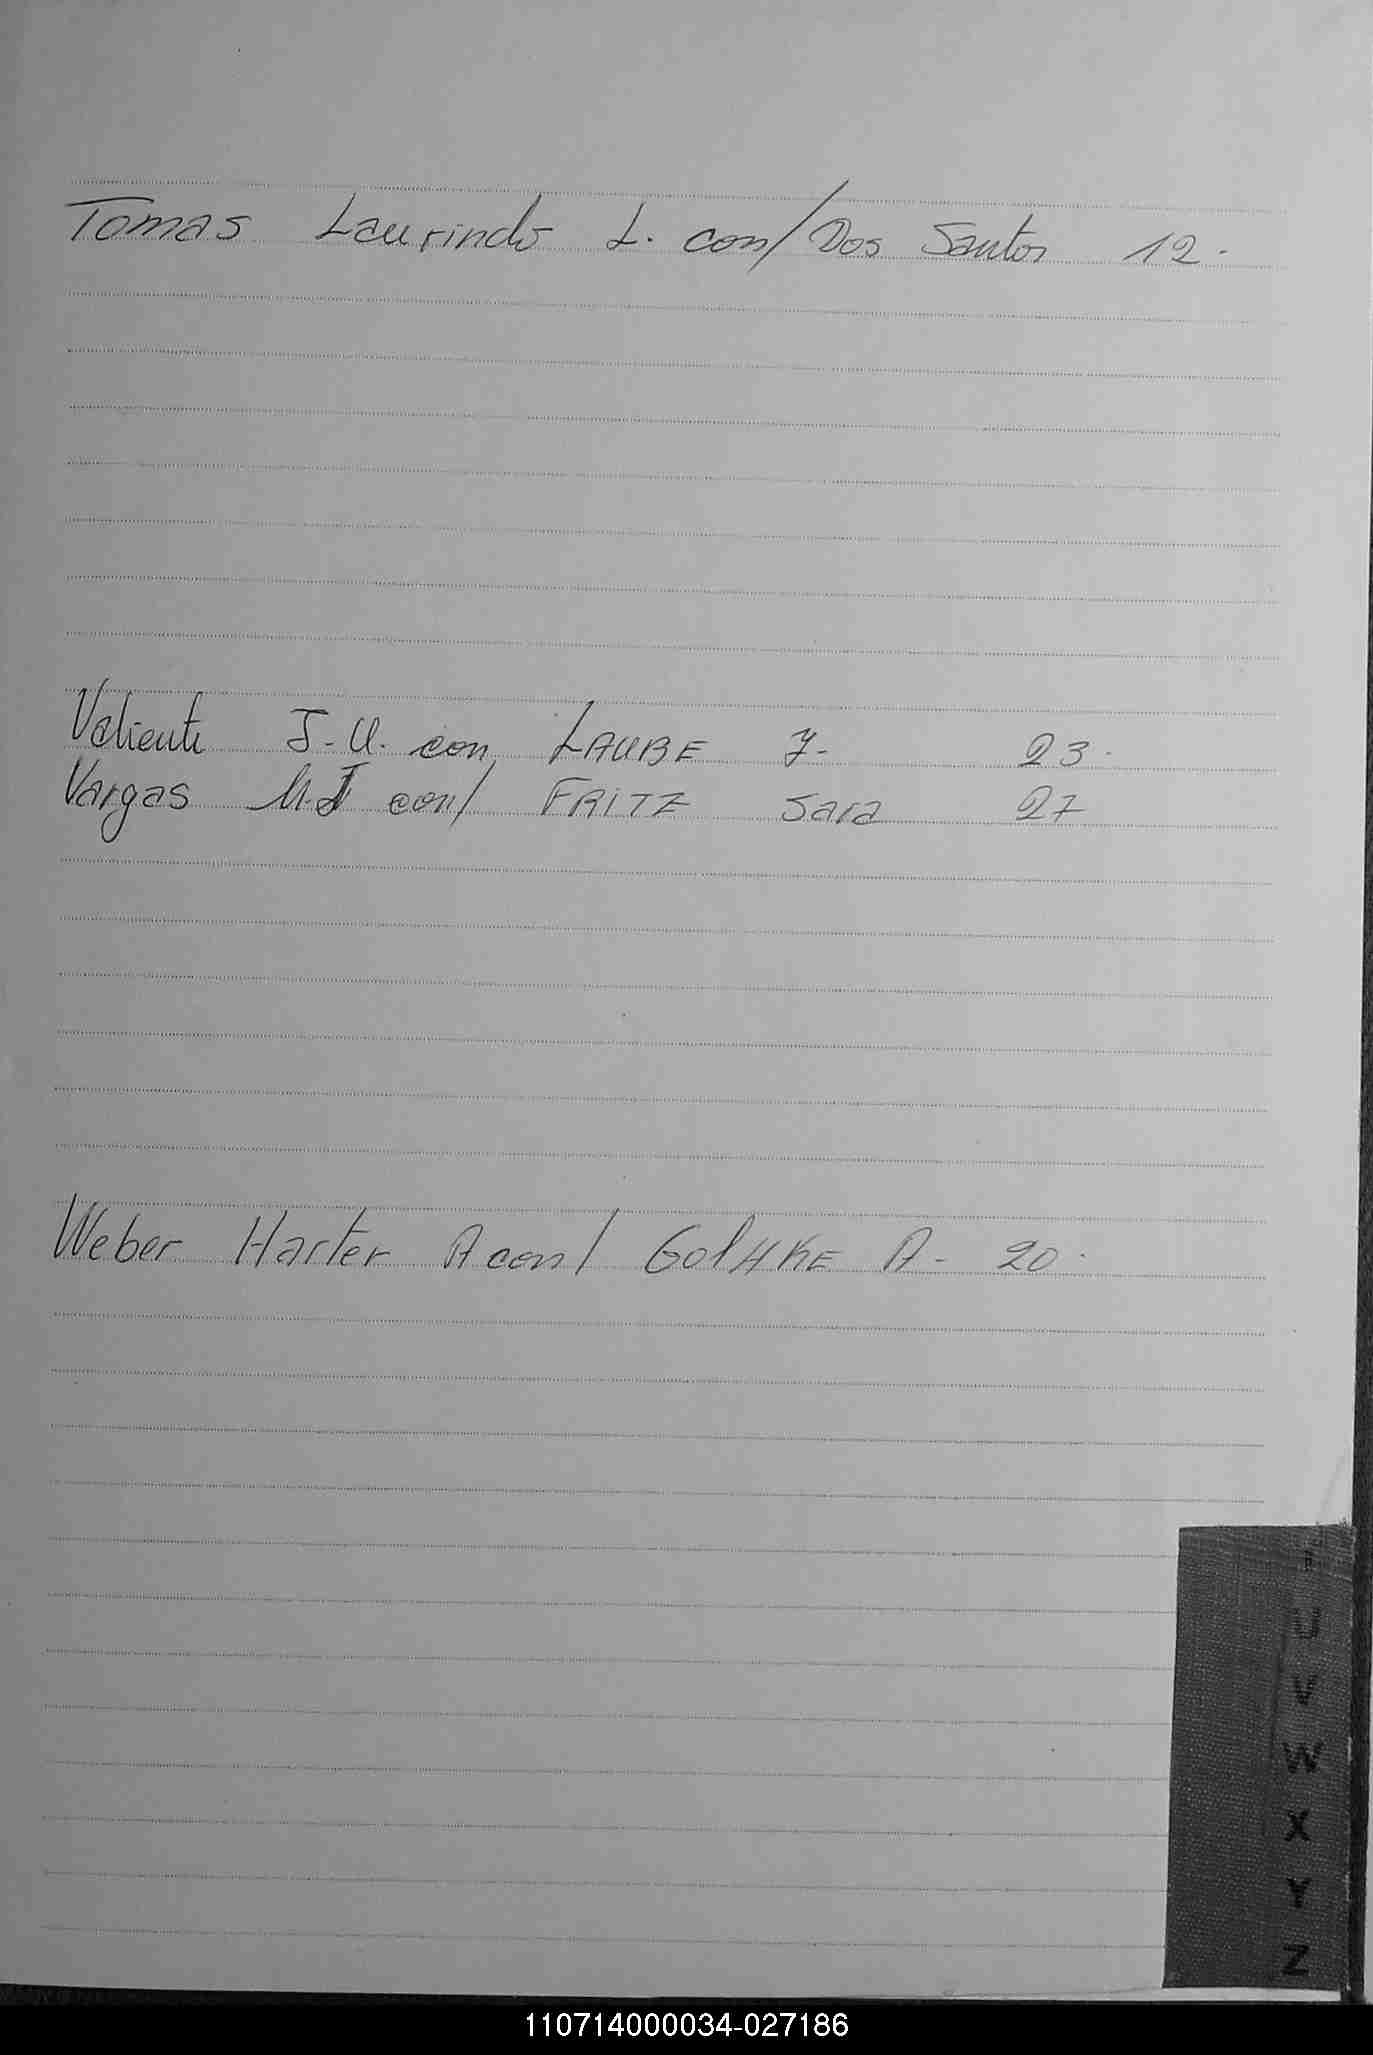 Tomas Laurindo L. con/ Dos Santos 12.
Valiente J-U. con LAUBE J- 23.
Vargas M.J con/ FRITZ Sara 27
Weber Harter A con/ GolHKE A- 20.
T
U
V
W
X
Y
Z
110714000034-027186